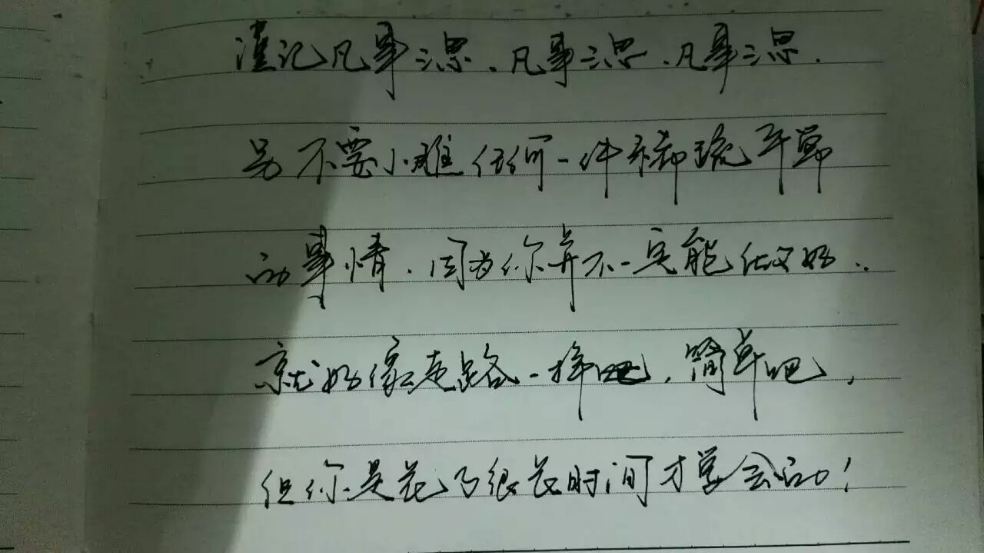 谨记凡事三思、凡事三思、凡事三思.
另不要小难任何一件稀疏平常
的事情.因为你并不一定能做好..
就好像走路一样吧,简单吧,
但你是花了很长时间才学会的!